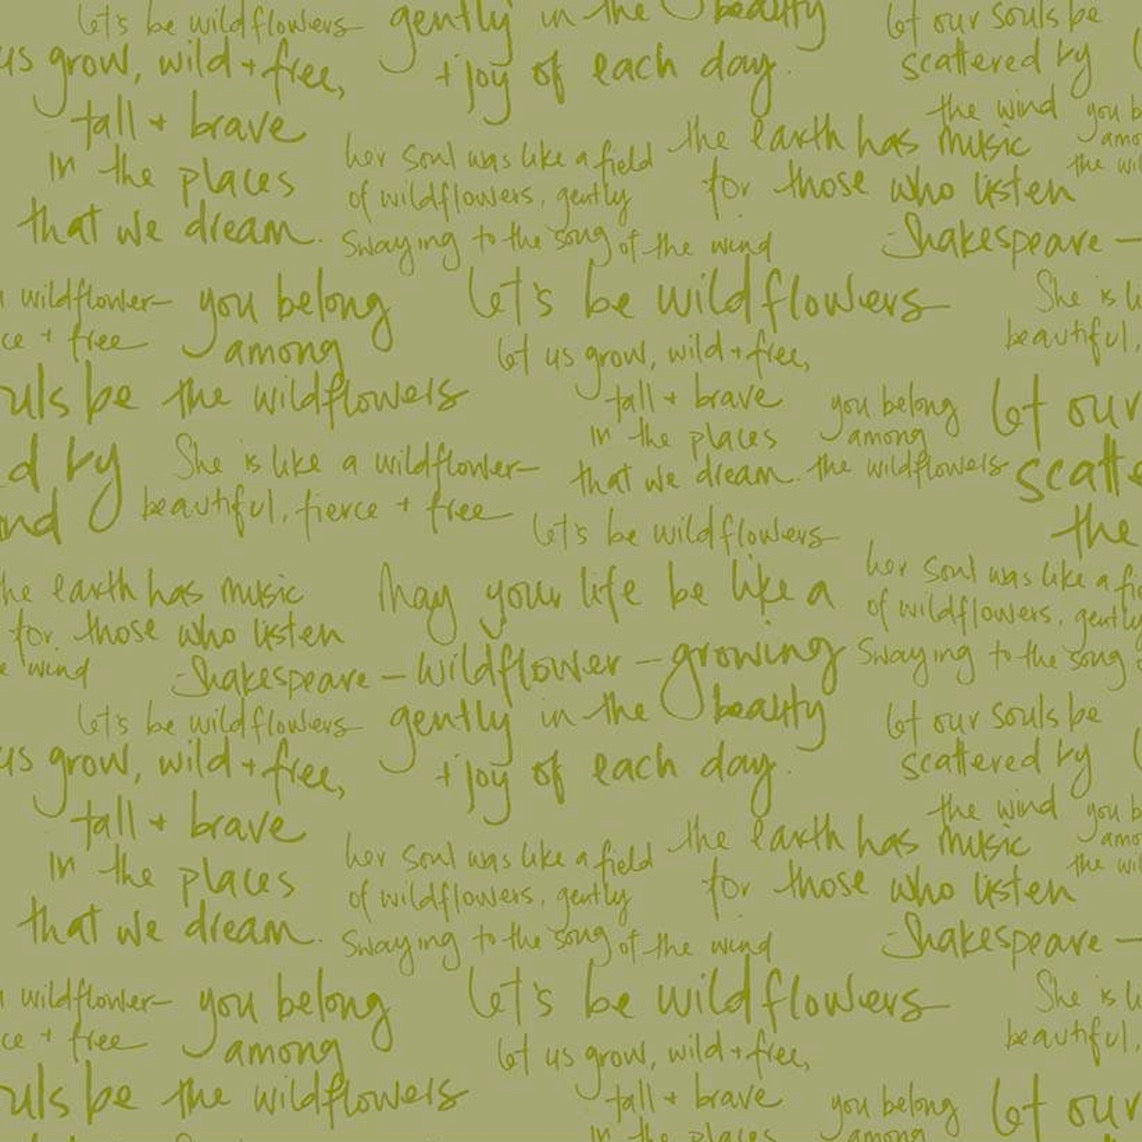 let's be wildflowers
gently in the beauty
let our souls be
us grow, wild + free,
+ joy of each day.
scattered by
tall + brave
the wind
you b
in the places
her soul was like a field
the earth has music
amo
that we dream.
of wildflowers, gently
for those who listen
the wi
swaying to the song of the wind
-Shakespeare-
wildflower-
you belong
let's be wildflowers
She is li
ce + free
among
let us grow, wild + free,
beautiful,
uls be
the wildflowers
tall + brave
you belong
let our
d by
She is like a wildflower-
in the places
among
scatte
nd
beautiful, fierce + free
that we dream.
the wildflowers
the
let's be wildflowers
he earth has music
may your life be like a
her soul was like a fi
for those who listen
wildflower - growing
of wildflowers, gently
e wind
-Shakespeare-
swaying to the song
let's be wildflowers
gently in the beauty
let our souls be
us grow, wild + free,
+ joy of each day.
scattered by
tall + brave
the wind
you b
in the places
her soul was like a field
the earth has music
amo
that we dream.
of wildflowers, gently
for those who listen
the wi
swaying to the song of the wind
-Shakespeare-
wildflower-
you belong
let's be wildflowers
She is li
ce + free
among
let us grow, wild + free,
beautiful,
uls be
the wildflowers
tall + brave
you belong
let our
in the places
among